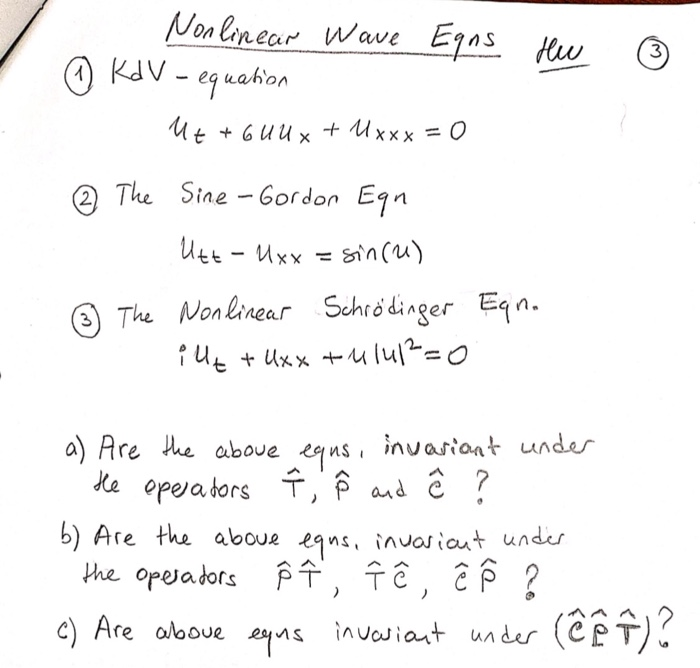 Nonlinear Wave Eqns Hw ③
① KdV - equation
u_t + 6uu_x + u_xxx = 0
② The Sine - Gordon Eqn
u_tt - u_xx = sin(u)
③ The Nonlinear Schrödinger Eqn.
iu_t + u_xx + u|u|² = 0
a) Are the above eqns. invariant under
the operators T̂, P̂ and Ĉ ?
b) Are the above eqns. invariant under
the operators P̂T̂, T̂Ĉ, ĈP̂ ?
c) Are above eqns invariant under (ĈP̂T̂)?